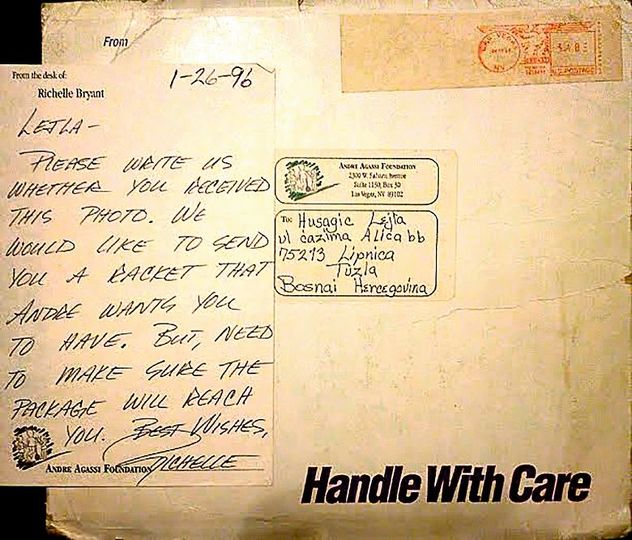 From
From the desk of:
Richelle Bryant
1-26-96
LEJLA -
PLEASE WRITE US
WHETHER YOU RECEIVED
THIS PHOTO. WE
WOULD LIKE TO SEND
YOU A RACKET THAT
ANDRE WANTS YOU
TO HAVE. BUT, NEED
TO MAKE SURE THE
PACKAGE WILL REACH
YOU. BEST WISHES,
RICHELLE
ANDRE AGASSI FOUNDATION
ANDRE AGASSI FOUNDATION
2300 W. Sahara Avenue
Suite 1150, Box 30
Las Vegas, NV 89102
To: Husagic Lejla
ul ćazima Alića bb
75213 Lipnica
Tuzla
Bosnai Hercegovina
U.S. POSTAGE
Handle With Care